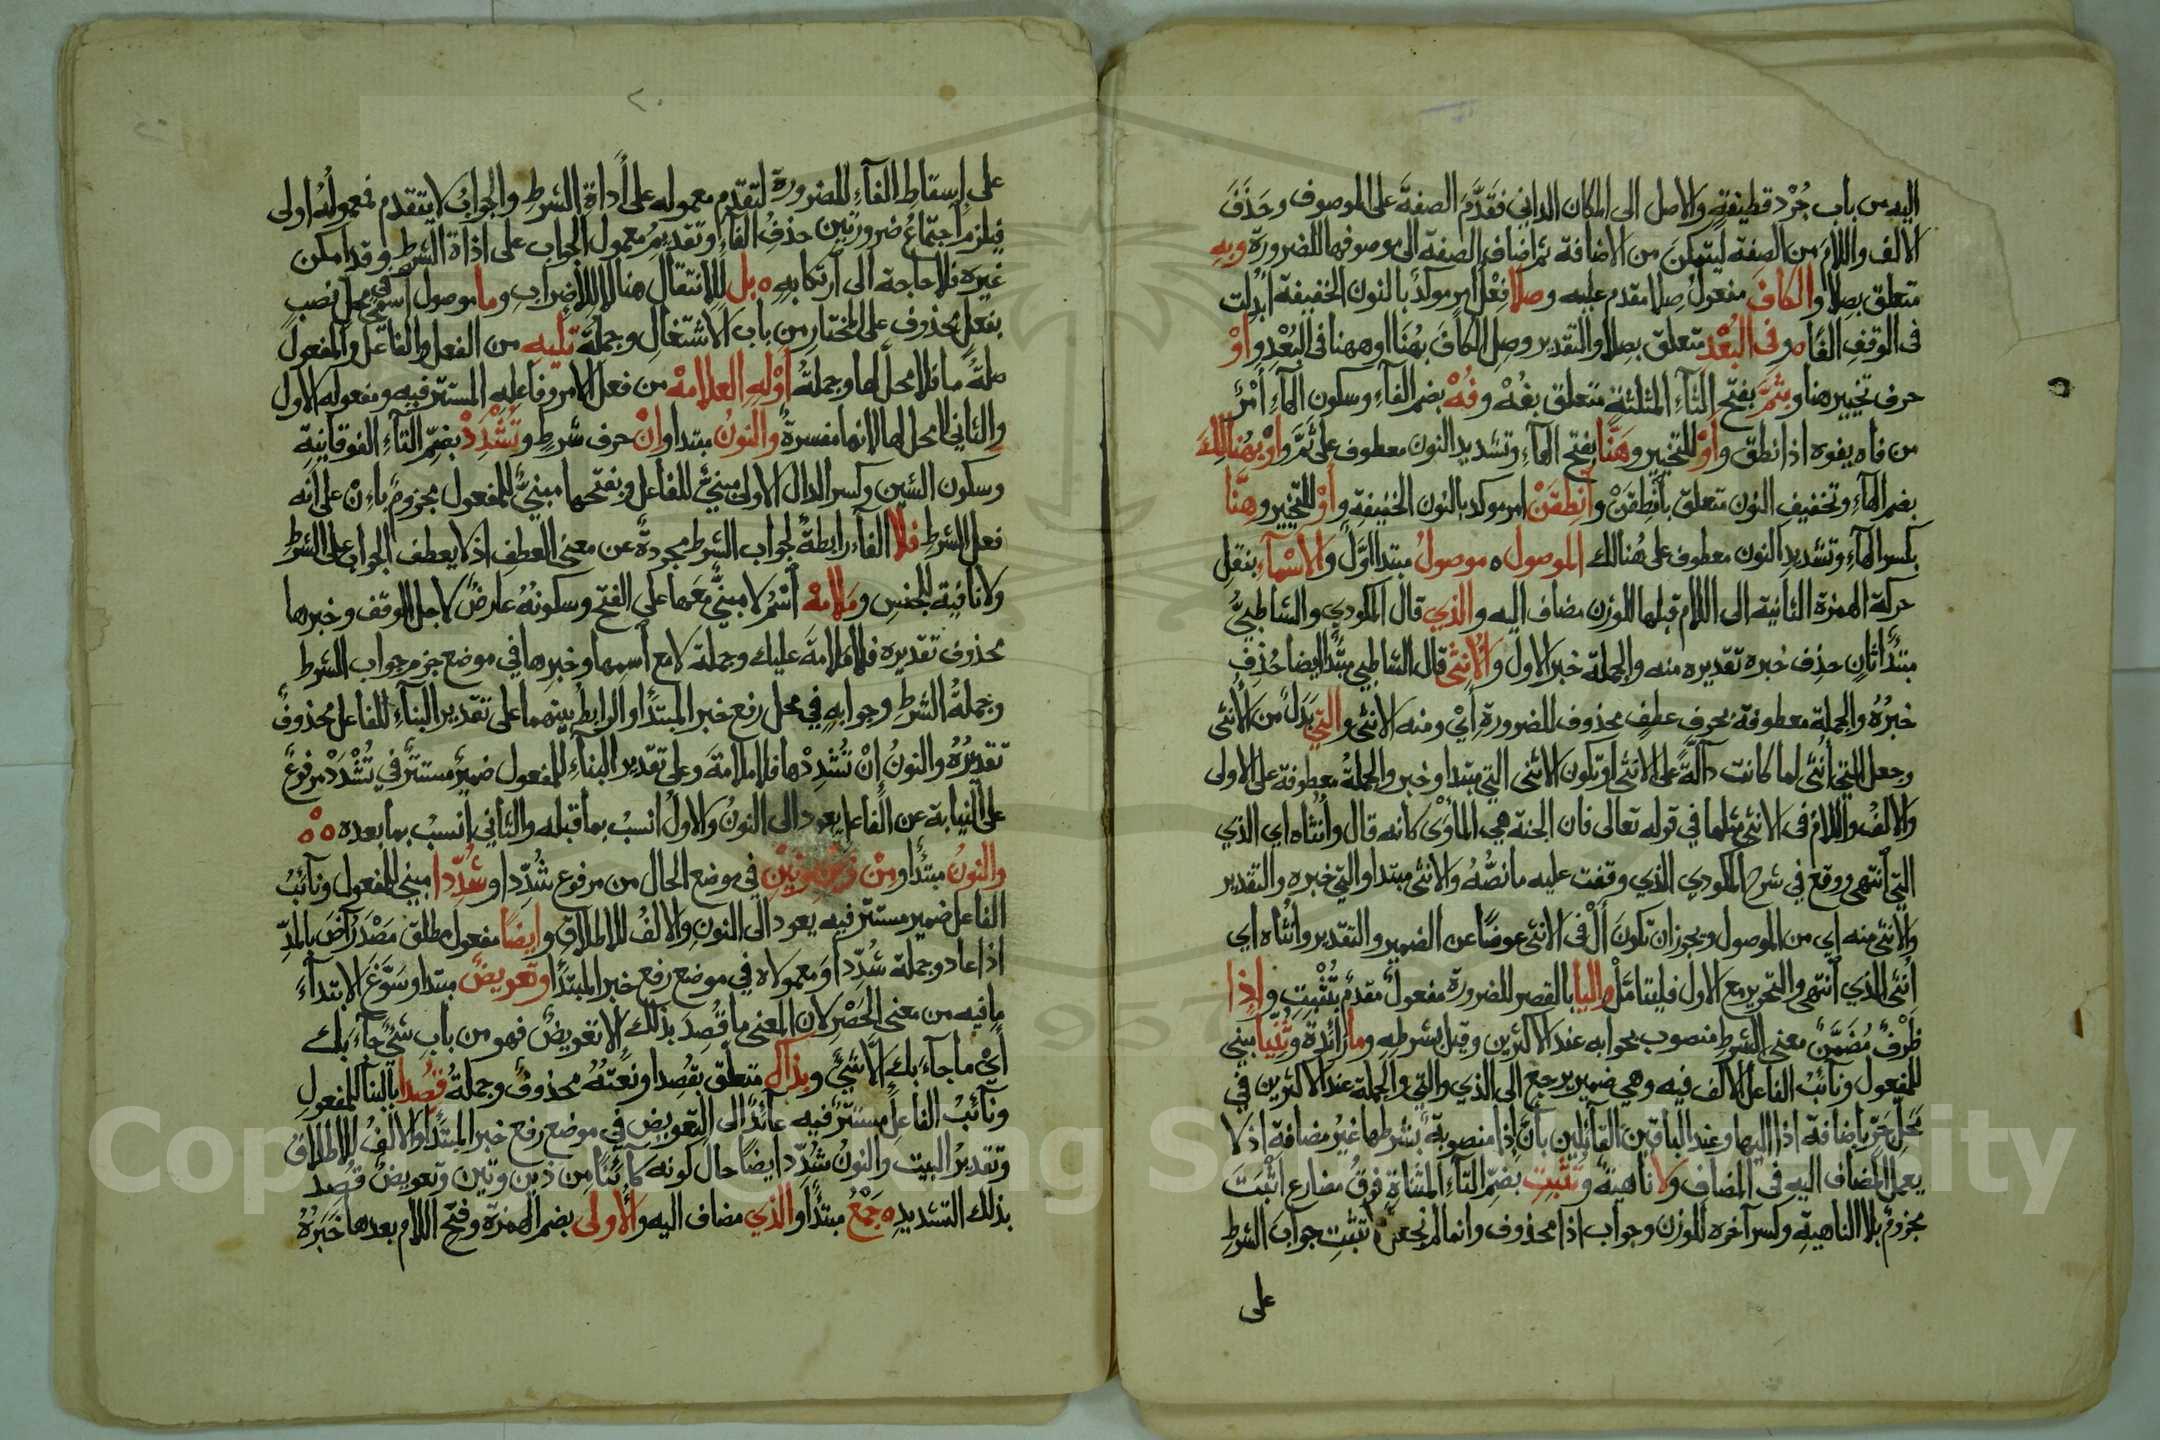 اليه من باب جُرْد قطيفةٍ والاصل الى المكان الداني فقَدَّم الصفة على الموصوف وحَذَفَ
الالف واللام من الصفة ليتمكن من الاضافة ثم اضاف الصفة الى موصوفها للضرورة وبِهِ
متعلق بصلا والكافَ مفعول صِلا مقدم عليه وصلا فعْل امر موكد بالنون الخفيفة ابدلت
فى الوقف الفًا ه وفى البُعْدِ متعلق بصلا والتقدير وصِلِ الكافَ بهُنَا او ههنا فى البُعْدِ واوْ
حرف تخيير هنا وبثَمَّ بفتح الثآء المثلثة متعلق بفُهْ وفُهْ بضم الفآء وسكون الهآء أَمْرٌ
من فاه يفوه اذا نطق واوْ للتخيير وهَنَّا بفتح الهآء وتشديد النون معطوف على ثمَّ واوْ بهُنالِكَ
بضم الهآء وتخفيف النون متعلق بانْطِقَنْ وانطقَنْ امر موكد بالنون الخفيفة وأوْ للتخيير وهِنَّا
بكسر الهآء وتشديد النون معطوف على هُنالك الموصول ه موصولُ مبتدا اوَّل والاسْمآءِ بنقل
حركة الهمزة الثانية الى اللام قبلها للوزن مضاف اليه والذي قال المكودي والشاطبيُّ
مبتدأ ثانٍ حذف خبره تقديره منه والجملة خبر الاول والاُنثى قال الشاطبي مبتدأ ايضا حُذِفَ
خبرُهُ والجملة معطوفة بحرف عطف محذوف للضرورة أيْ ومنه الانثى والتي بَدَلٌ من الانثى
وجعل التي أُنثى لما كانت دآلَّةً على الانثى او تكون الانثى التي مبتدا وخبر والجملةُ معطوفة على الاولى
والالفُ واللام فى الانثى مثلها في قوله تعالى فان الجنة هي المأوَى كانه قال وأُنثاه اي الذي
التي انتهى ووقع في شرح المكودي الذي وقفت عليه ما نصُّهُ والانثى مبتدا والتي خبره والتقدير
والانثى منه اي من الموصول ويجوز ان تكونَ أَلْ فى الانثى عوضًا عن الضمير والتقدير وانُثاه اي
اُنثى الذي انتهى والتحرير مع الاول فليتأمّلْ واليا بالقصر للضرورة مفعولٌ مقدمٌ بتُثْبِتِ وإذا
ظَرْفٌ مُضَمَّنٌ معنى الشرط منصوب بجوابه عند الاكثرين وقيل بشرطهِ وما زائدة وثُنِّيا مبني
للمفعول ونآئبُ الفاعل الالف فيه وهي ضمير يرجع الى الذي والتي والجملة عند الاكثرين في
مَحَلِّ جَرٍّ باضافة اذا اليها وعند الباقين القآئلين بأنَّ إذا منصوبة بشرطها غيرُ مضافة اذ لا
يعمل المضاف اليه فى المضاف ولا ناهيةٌ وتُثْبِتِ بضمّ التآءِ المثناةِ فوقُ مضارع اثْبَتَ
مجزومٌ بلا الناهيةِ وكسر آخره للوزن وجواب اذا محذوف وانما لم نجعلْ لا تثبتِ جوابَ الشرطِ
على
٢٠
على إسقاط الفآءِ للضرورة لتقدّم معموله على أداة الشرط والجوابُ لا يتقدم فمعمولُهُ اولى
فيلزم اجتماعُ ضرورتين حذفُ الفآءِ وتقديمُ معمول الجواب على اداة الشرط وقد امكن
غيره فلا حاجة الى ارتكابهِ ه بل للانتقال هنا لا للاِضراب وما موصول اسمي في محل نصبٍ
بفعلٍ محذوف على المختار من باب الاشتغال وجملةُ تليهِ من الفعل والفاعل والمفعول
صلةُ ما فلا محل لها وجملةُ أوْلِهِ العلامهْ من فعل الامر وفاعله المستتر فيه ومفعوله الاول
والثاني لا محل لها لانها مفسرةٌ والنونُ مبتدا وإنْ حرف شرط وتُشْدِدْ بضمّ التآءِ الفوقانية
وسكون الشين وكسر الدال الاولى مبنيٌّ للفاعل وبفتحها مبنيٌّ للمفعول مجزومٌ بإنْ على أنه
فعل الشرط فلا الفآء رابطةٌ لجواب الشرط مجردةٌ عن معنى العطف اذ لا يعطف الجواب على الشرط
ولا نافية للجنس ومَلامهْ اسْمُ لا مبنيٌّ معها على الفتح وسكونهُ عارضٌ لاجل الوقف وخبرها
محذوف تقديره فلا ملامةَ عليك وجملة لا مع اسمها وخبرها في موضع جزم جواب الشرط
وجملةُ الشرط وجوابه في محل رفع خبر المبتدأ والرابط بينهما على تقدير البنآءِ للفاعل محذوفٌ
تقديرُهُ والنونُ إنْ تُشْدِدْها فلا ملامةَ وعلى تقدير البنآءِ للمفعول ضميرٌ مستترٌ في تُشْدَدْ مرفوعٌ
على النيابة عن الفاعل يعود الى النون والاولُ أنسبُ بما قبله والثاني انسبُ بما بعده ه ه
والنونُ مبتدأ ومِنْ ذَيْنِ وتَيْنِ في موضع الحال من مرفوع شُدِّدا وشُدِّدا مبني للمفعول ونآئبُ
الفاعل ضمير مستتر فيه يعود الى النون والالفُ للاطلاق وايضًا مفعول مطلق مَصْدَرُ آضَ بالمدِّ
اذا عاد وجملة شُدِّدا ومعمولاه في موضع رفع خبر المبتدأ وتعويضٌ مبتدا وسَوَّغَ الابتدآءَ
ما فيه من معنى الحَصْر لان المعنى ما قُصِدَ بذلك الا تعويضٌ فهو من باب شيٌ جآءَ بك
أيْ ما جآءَ بك إلَّا شيٌ وبذاكَ متعلق بقُصِدا ونَعْتُهُ محذوفٌ وجملةُ قُصِدا بالبنآءِ للمفعول
ونآئبُ الفاعل مستترٌ فيه عآئدٌ الى التعويض في موضع رفع خبر المبتدأ والالفُ للاطلاق
وتقديرُ البيت والنونُ شُدِّدَ ايضًا حال كونه كآئنًا من ذَين وتين وتعويضٌ قُصِدَ
بذلك التشديدِ ه جَمْعُ مبتدأ والذي مضاف اليه والأُولى بضم الهمزة وفتح اللام بعدها خبرُهُ